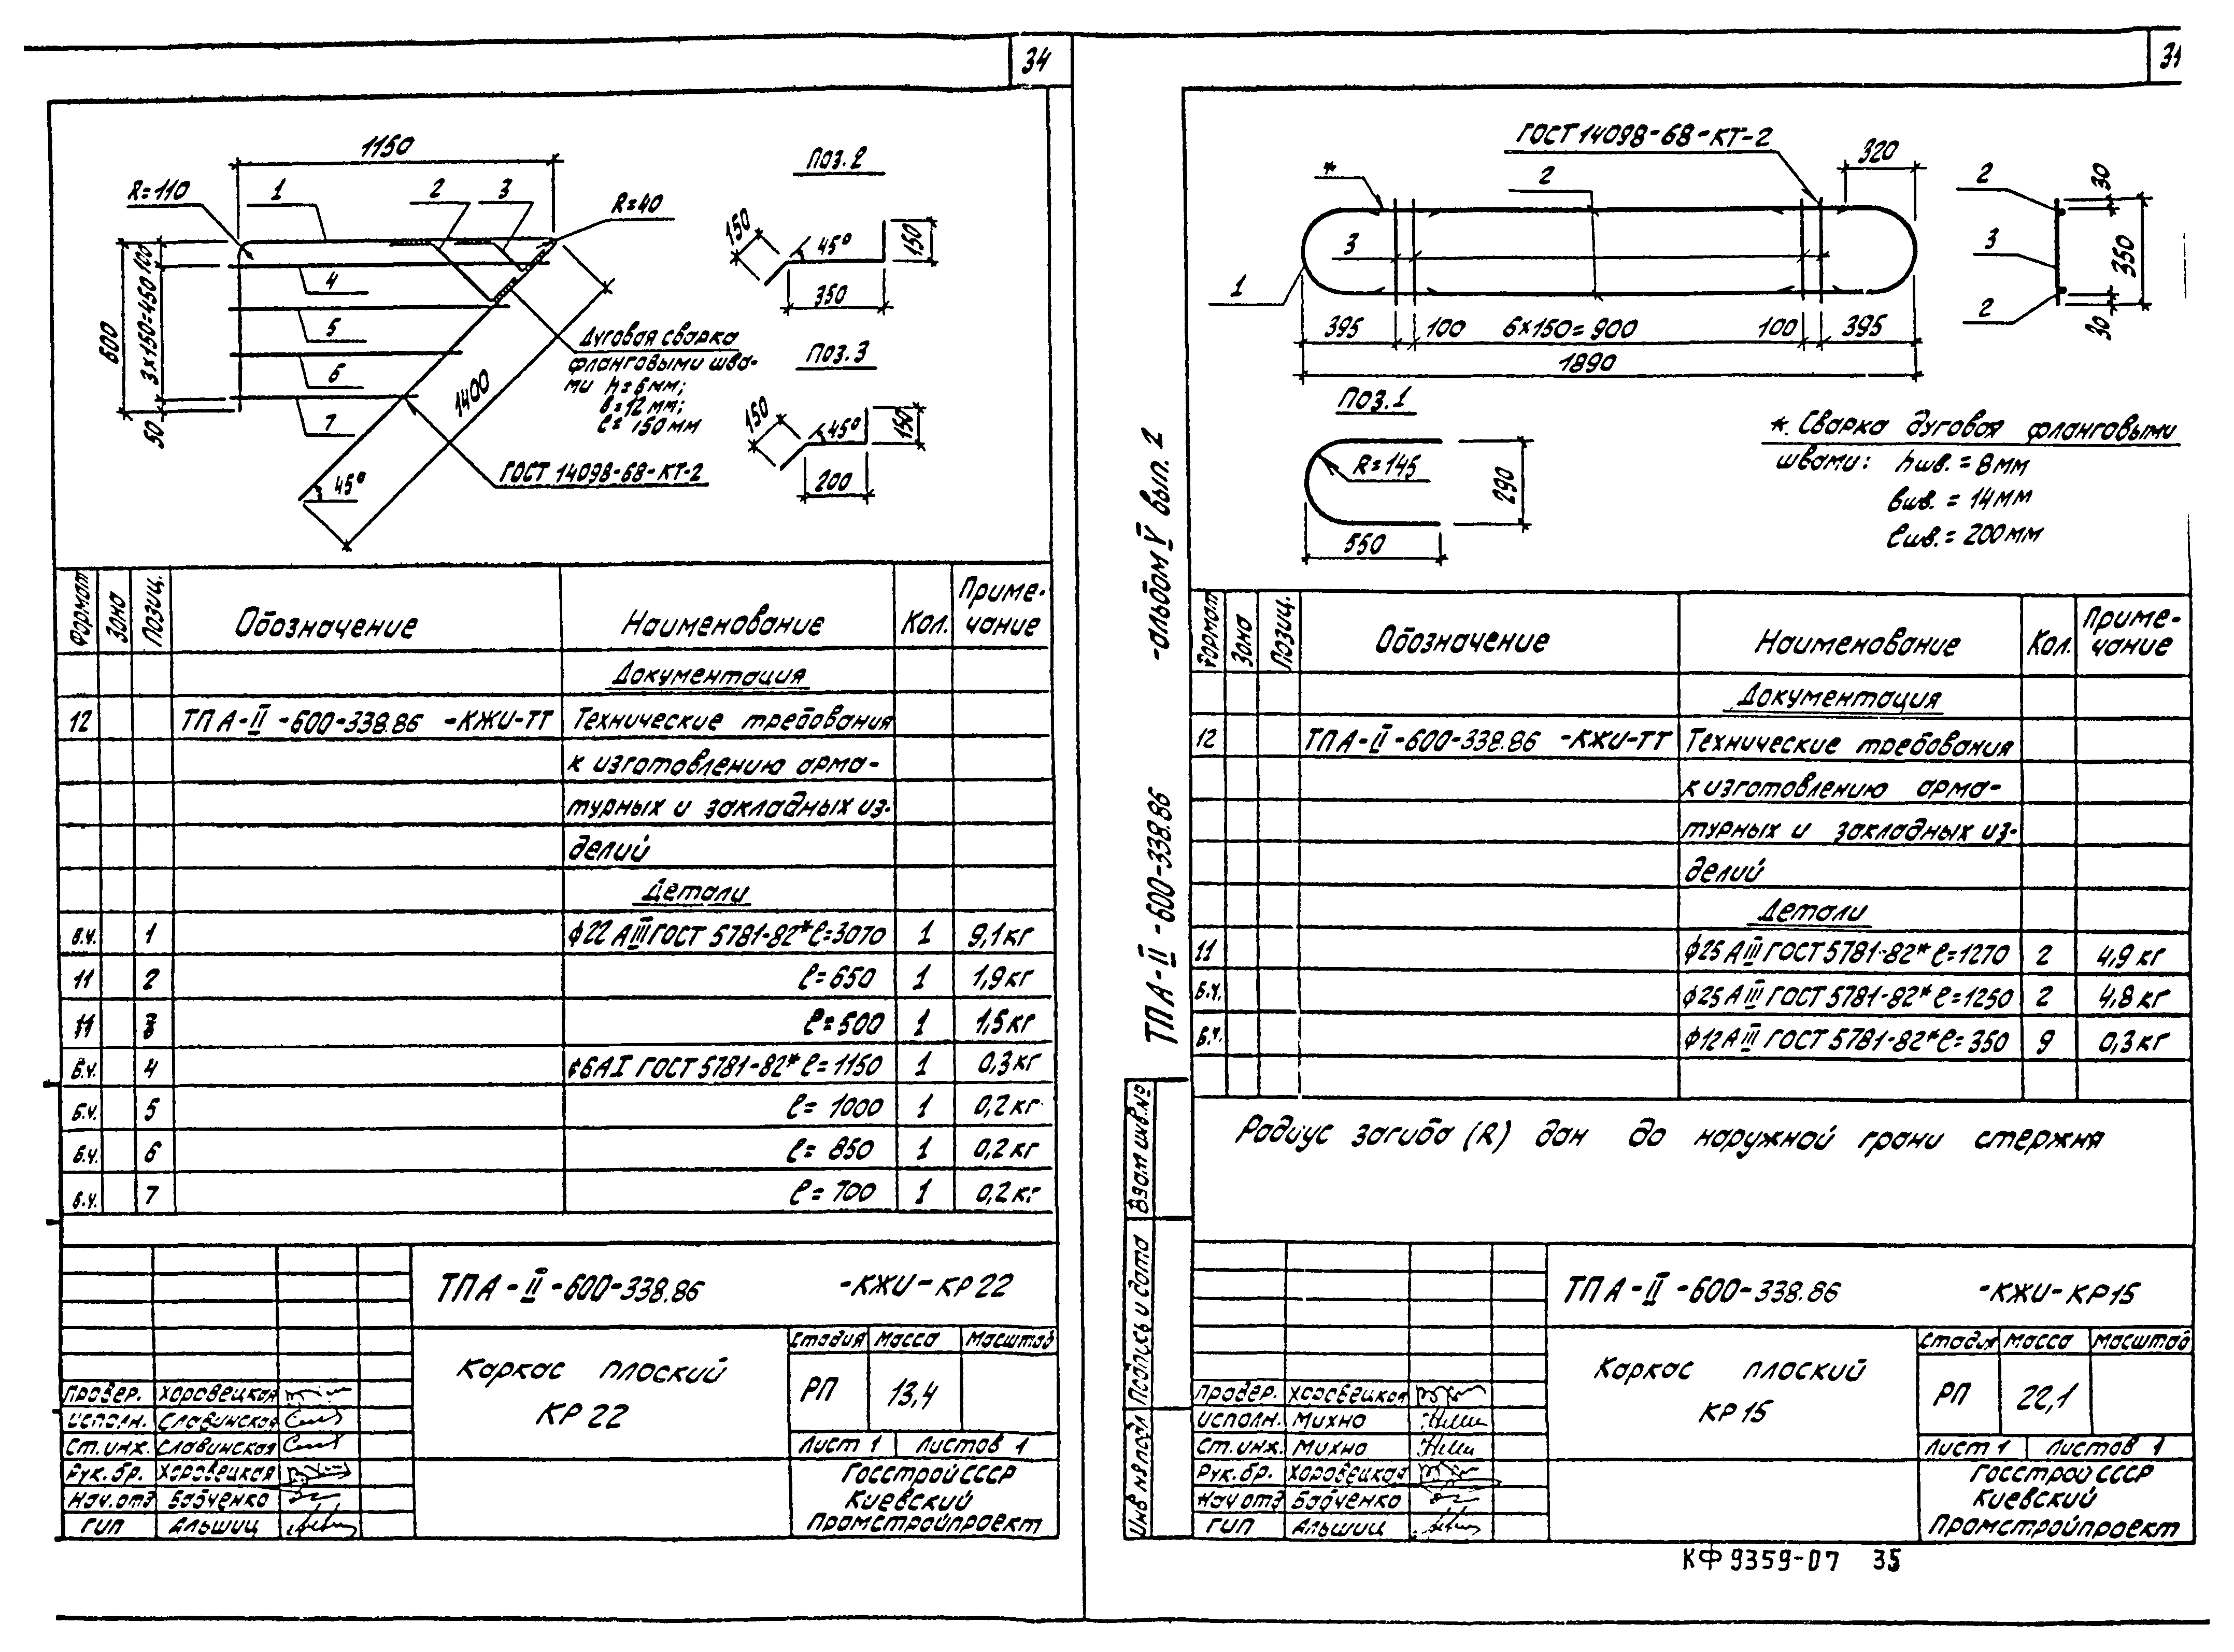 34
1150
R=110
1
2
3
R=40
600
3x150=450
100
50
4
5
6
7
1400
45°
Дуговая сварка
фланговыми шва-
ми h=6мм;
в=12мм;
ℓ=150мм
ГОСТ 14098-68-КТ-2
Поз.2
150
45°
150
350
Поз.3
150
45°
150
200
Формат
Зона
Позиц.
Обозначение
Наименование
Кол.
Приме-
чание
Документация
12 ТП А-II-600-338.86 -КЖИ-ТТ Технические требования
к изготовлению арма-
турных и закладных из-
делий
Детали
Б.Ч. 1 ф22 АIII ГОСТ 5781-82* ℓ=3070 1 9,1кг
11 2 ℓ=650 1 1,9кг
11 3 ℓ=500 1 1,5кг
Б.Ч. 4 ф6АI ГОСТ 5781-82* ℓ=1150 1 0,3кг
Б.Ч. 5 ℓ=1000 1 0,2кг
Б.Ч. 6 ℓ=850 1 0,2кг
Б.Ч. 7 ℓ=700 1 0,2кг
ТП А-II-600-338.86 -КЖИ-КР22
Каркас плоский
КР22
Стадия Масса Масштаб
РП 13,4
Лист 1 Листов 1
Госстрой СССР
Киевский
Промстройпроект
Провер. Хоровецкая
Исполн. Славинская
Ст.инж. Славинская
Рук.бр. Хоровецкая
Нач.отд Бабченко
ГИП Альшиц
ГОСТ 14098-68-КТ-2
320
*
2
3
1
395
100
6x150=900
100
395
1890
2
3
2
30
350
30
Поз.1
R=145
290
550
*. Сварка дуговая фланговыми
швами: hшв.=8мм
вшв.=14мм
ℓшв.=200мм
ТП А-II-600-338.86 -альбом V вып. 2
Формат
Зона
Позиц.
Обозначение
Наименование
Кол.
Приме-
чание
Документация
12 ТП А-II-600-338.86 -КЖИ-ТТ Технические требования
к изготовлению арма-
турных и закладных из-
делий
Детали
11 ф25 АIII ГОСТ 5781-82* ℓ=1270 2 4,9кг
Б.Ч. ф25 АIII ГОСТ 5781-82* ℓ=1250 2 4,8кг
Б.Ч. ф12 АIII ГОСТ 5781-82* ℓ=350 9 0,3кг
Радиус загиба (R) дан до наружной грани стержня
Взам инв.№
Подпись и дата
Инв № подл
ТП А-II-600-338.86 -КЖИ-КР15
Каркас плоский
КР15
Стадия Масса Масштаб
РП 22,1
Лист 1 Листов 1
Госстрой СССР
Киевский
Промстройпроект
Провер. Хоровецкая
Исполн. Михно
Ст.инж. Михно
Рук.бр. Хоровецкая
Нач отд Бабченко
ГИП Альшиц
КФ 9359-07 35